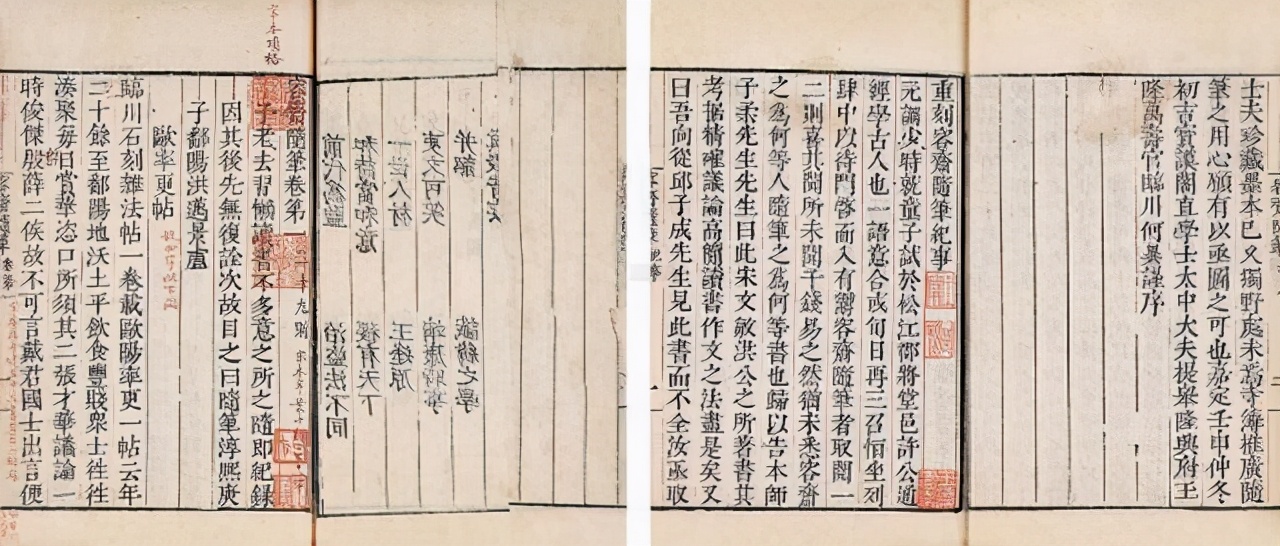 士夫珍藏墨本巳又獨野處未焉寺簿榷廣隨
筆之用心願有以亟圖之可也嘉定壬申仲冬
初吉寶謨閣直學士太中大夫提舉隆興府玉
隆萬壽宮臨川何異謹序
重刻容齋隨筆紀事
元調少時就童子試於松江郡將堂邑許公通
經學古人也一語意合或旬日再三召恒坐列
肆中以待門啓而入有鬻容齋隨筆者取閱一
二則喜其聞所未聞千錢易之然猶未悉容齋
之爲何等人隨筆之爲何等書也歸以告本師
子柔先生先生曰此宋文敏洪公之所著書其
考据精確議論高簡讀書作文之法盡是矣又
曰吾向從邱子成先生見此書而不全汝亟收
并韶 讖緯之學
吏文可笑 靖康時事
一世人材 王逢原
和詩當和意 稷有天下
前代爲監 治盜法不同
宋本頂格
容齋隨筆卷第一
予老去習懶讀書不多意之所之隨即紀錄
因其後先無復詮次故目之曰隨筆淳熙庚
子鄱陽洪邁景盧
歐率更帖
臨川石刻雜法帖一卷載歐陽率更一帖云年
二十餘至鄱陽地沃土平飲食豐賤衆士往往
湊聚每日賞華恣口所須其二張才華議論一
時俊傑殷薛二侯故不可言戴君國士出言便